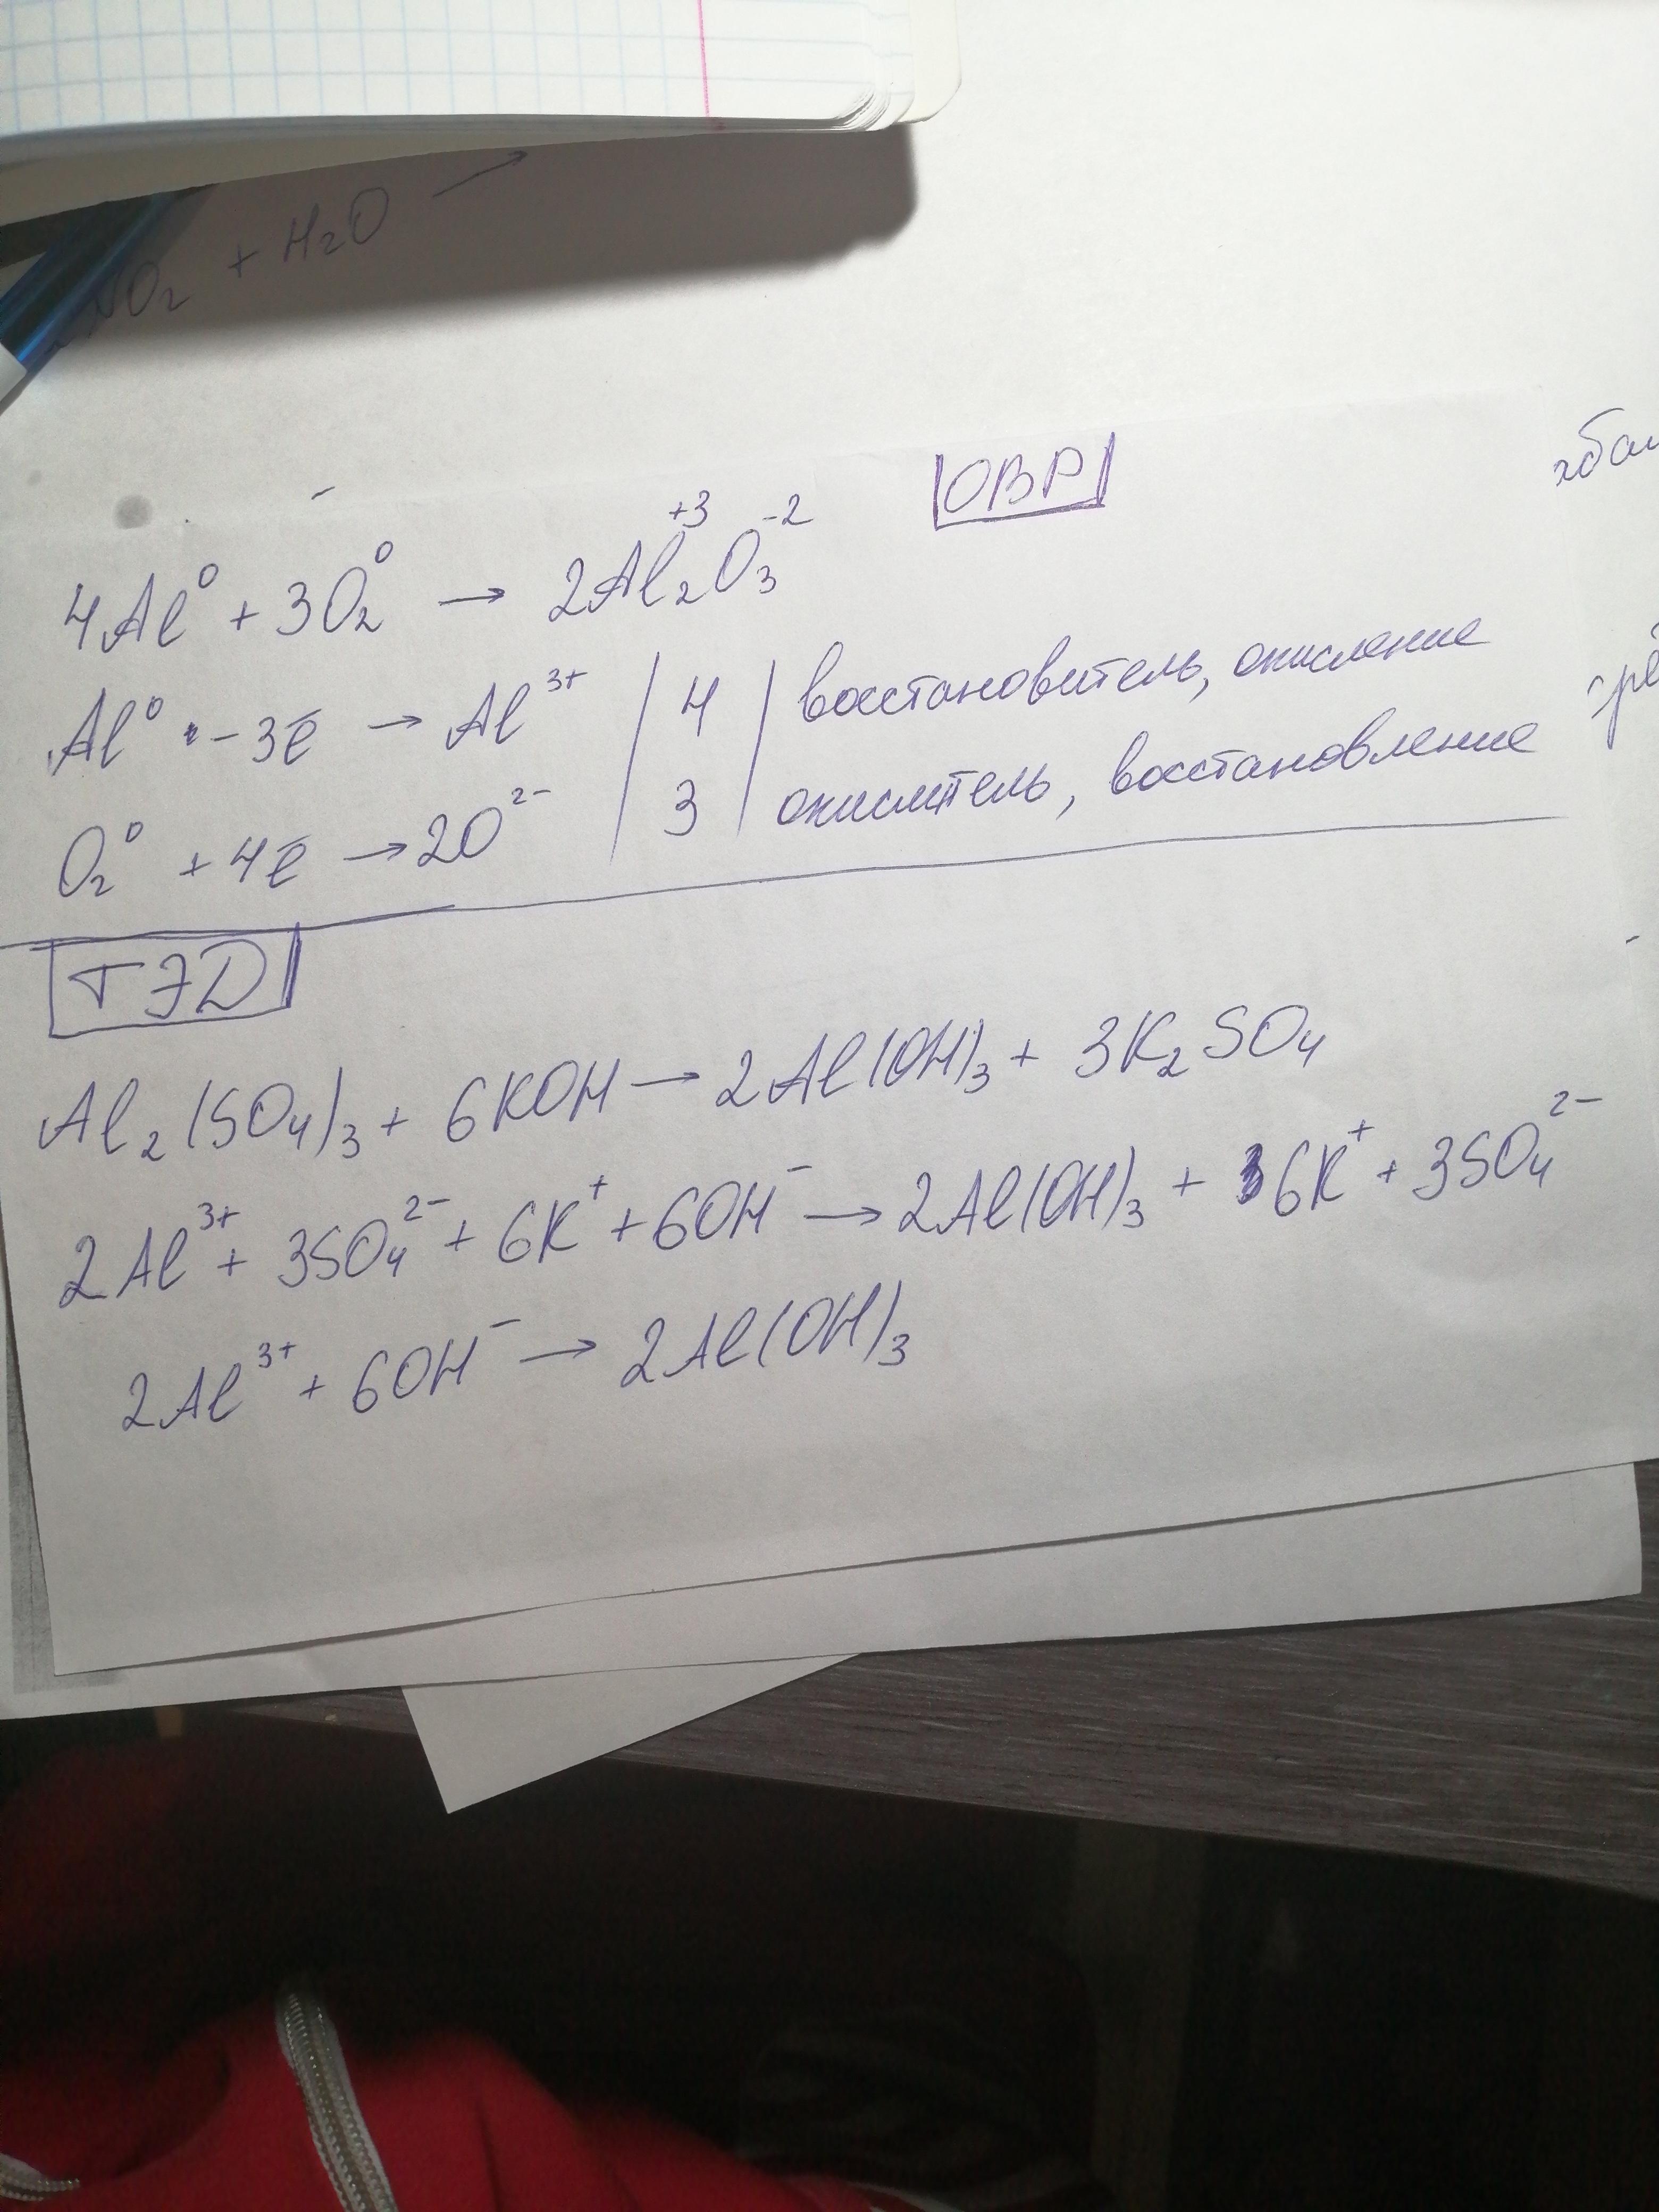 NO₂ + H₂O →
ОВР
4Al⁰ + 3O₂⁰ → 2Al₂⁺³O₃⁻²
Al⁰ - 3ē → Al³⁺ | 4 | восстановитель, окисление
O₂⁰ + 4ē → 2O²⁻ | 3 | окислитель, восстановление
ТЭД
Al₂(SO₄)₃ + 6KOH → 2Al(OH)₃ + 3K₂SO₄
2Al³⁺ + 3SO₄²⁻ + 6K⁺ + 6OH⁻ → 2Al(OH)₃ + 6K⁺ + 3SO₄²⁻
2Al³⁺ + 6OH⁻ → 2Al(OH)₃